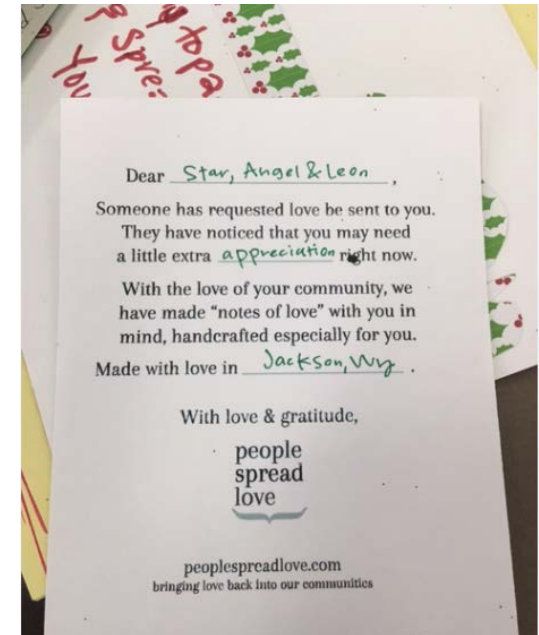 Dear Star, Angel & Leon ,
Someone has requested love be sent to you.
They have noticed that you may need
a little extra appreciation right now.
With the love of your community, we
have made “notes of love” with you in
mind, handcrafted especially for you.
Made with love in Jackson, Wy .
With love & gratitude,
people
spread
love
peoplespreadlove.com
bringing love back into our communities